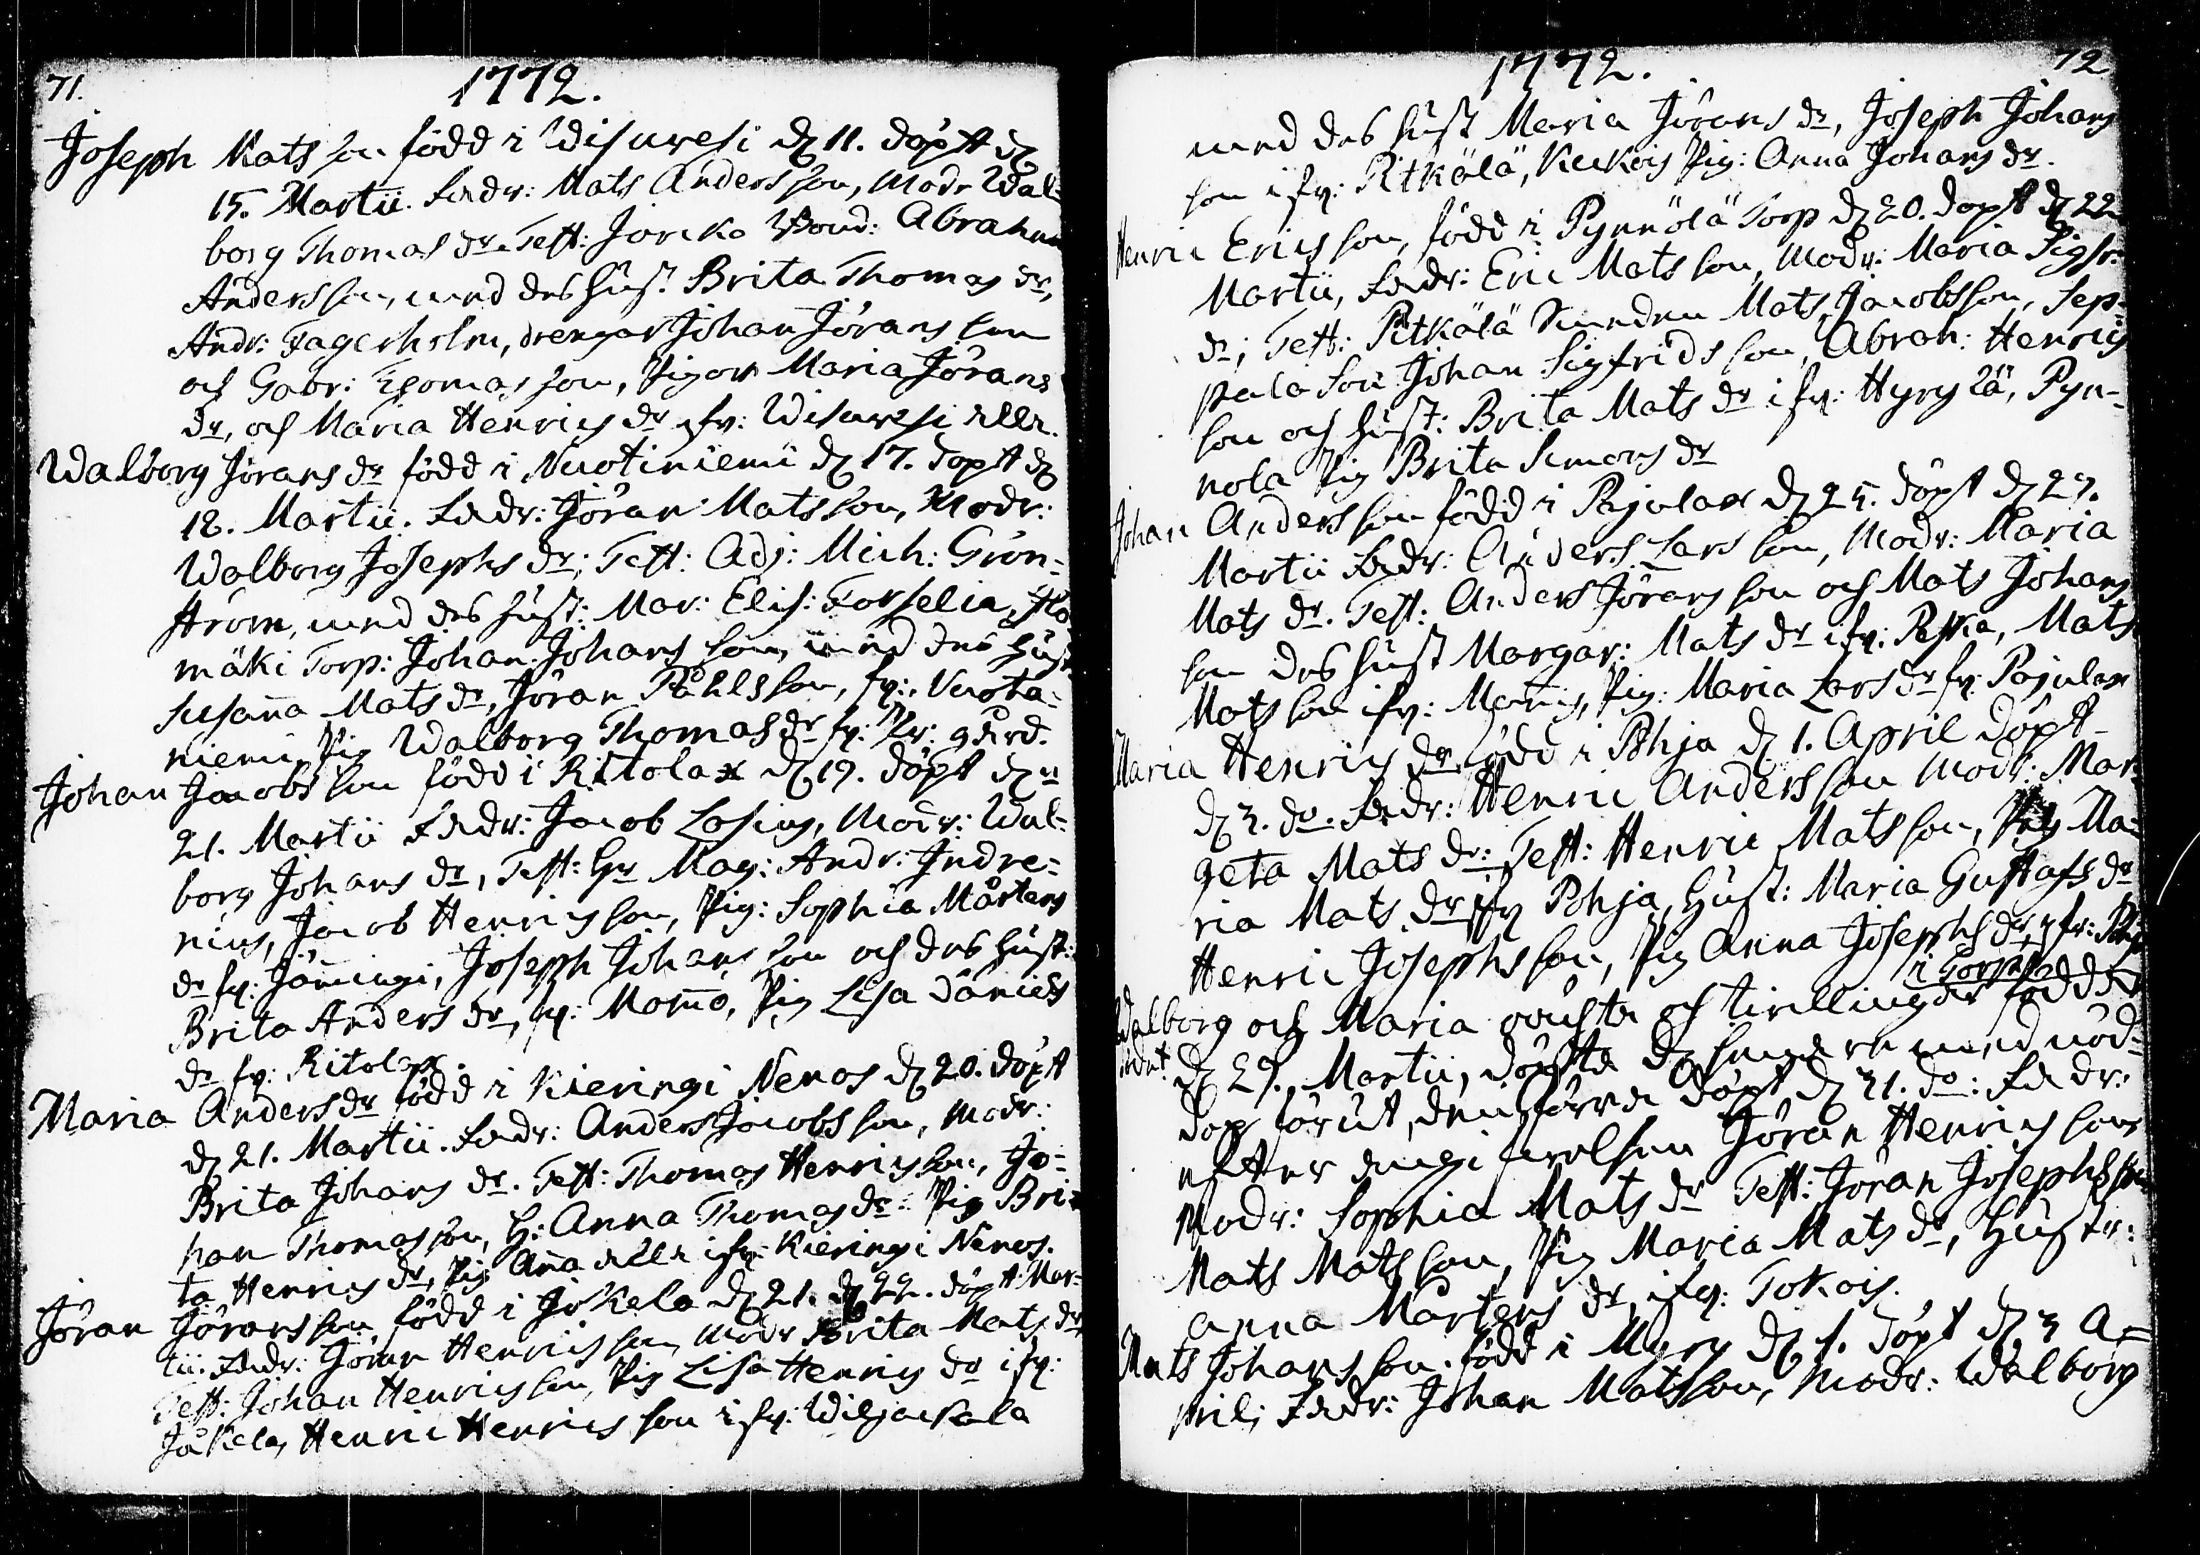 71.
1772.
Joseph Matsson född i Wisuvesi dz 11. döpt dz
15. Martii. Fadr: Mats Andersson, Modr Wal=
borg Thomas dr. Test: Joreko Bond: Abraham
Andersson, med des Hust Brita Thomas dr,
Andr: Fagerholm, drengar Johan Jöransson
och Gabr: Thomasson, Pigor Maria Jörans
dr, och Maria Henrics dr ifr: Wisuvesi alla.
Walborg Jörans dr född i Nuotiniemi dz 17. döpt dz
18. Martii. Fadr: Jöran Matsson, Modr:
Walborg Josephs dr; Test: Adj: Mich: Grön=
ström, med des Hust: Mar: Elis: Forselia,
mäki Torp: Johan Johansson, med des Hust
Susanna Mats dr, Jöran Påhlsson, fr: Nuota=
niemi Pig Walborg Thomas dr fr: Pr: gård.
Johan Jacobsson född i Ritola dz 19. döpt dz
21. Martii Fadr: Jacob Losius, Modr: Wal=
borg Johans dr, Test: Hr Mag: Andr: Indre=
nius, Jacob Henricsson, Pig: Sophia Mårtens
dr fr: Jämingi, Joseph Johansson och des Hust:
Brita Anders dr, fr: Momo, Pig Lisa Daniels
dr fr: Ritola.
Maria Anders dr född i Kieringi Nenos dz 20. döpt
dz 21. Martii. Fadr: Anders Jacobsson, Modr:
Brita Johans dr. Test: Thomas Henricsson, Jo=
han Thomasson, H: Anna Thomas dr: Pig Bri=
ta Henrics dr, Pig Ana alla ifr: Kieringi Nenos.
Jöran Jöransson, född i Jokela dz 21. dz 22. döpt Mar=
tii. Fadr: Jöran Henricsson, Modr Brita Mats dr
Test: Johan Henricsson, Pig Lisa Henrics dr ifr:
Jokela, Henric Henricsson ifr: Wiljackala
72
1772.
med des Hust Maria Jörans dr, Joseph Johans
son ifr: Pitkälä, Keckois Pig: Anna Johans dr.
Henric Ericsson, född i Pynnölä Torp dz 20. döpt dz 22
Martii, Fadr: Eric Matsson, Modr: Maria Sigfr:
dr; Test: Pitkälä Smeden Mats Jacobsson, Sep=
pala Son Johan Sigfridsson, Abrah: Henrics
son och Hust: Brita Mats dr ifr: Hyrylä, Pyn=
nola Pig Brita Simons dr
Johan Andersson född i Pajula dz 25. döpt dz 27.
Martii Fadr: Anders Larsson, Modr: Maria
Mats dr. Test: Anders Jöransson och Mats Johans
son des Hust Margar: Mats dr ifr: , Mats
Matsson ifr: , Pig: Maria Lars dr fr: Pajula
Maria Henrics dr född i Pohja dz 1. April döpt
dz 3. do. Fadr: Henric Andersson Modr: Mar=
geta Mats dr: Test: Henric Matsson, Pig Ma=
ria Mats dr ifr Pohja, Hust: Maria Gustafs dr
Henric Josephsson, Pig Anna Josephs dr,
Walborg och Maria och tvillingar född
dz 29. Martii, döpte med nöd=
dop förut, den förra döpt dz 31. do: Fadr:
efter Jöran Henricsson
Modr: Sophia Mats dr Test: Jöran Josephsson
Mats Matsson, Pig Maria Mats dr, Hustr:
Anna Mårtens dr, ifr: Tokois.
Mats Johansson. född i Myry dz 1. döpt dz 3 A=
pril; Fadr: Johan Matsson, Modr: Walborg